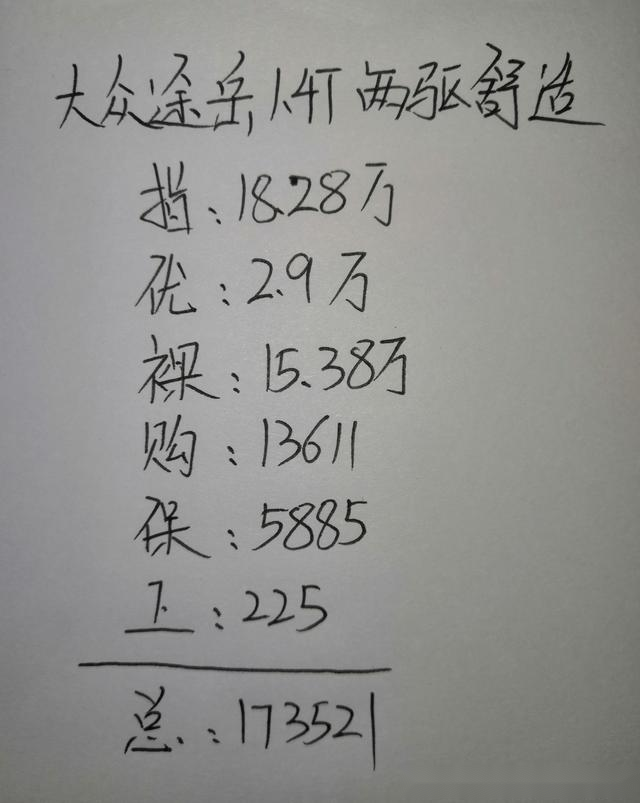 大众途岳1.4T两驱舒适
指:18.28万
优:2.9万
裸:15.38万
购:13611
保:5885
上:225
总:173521